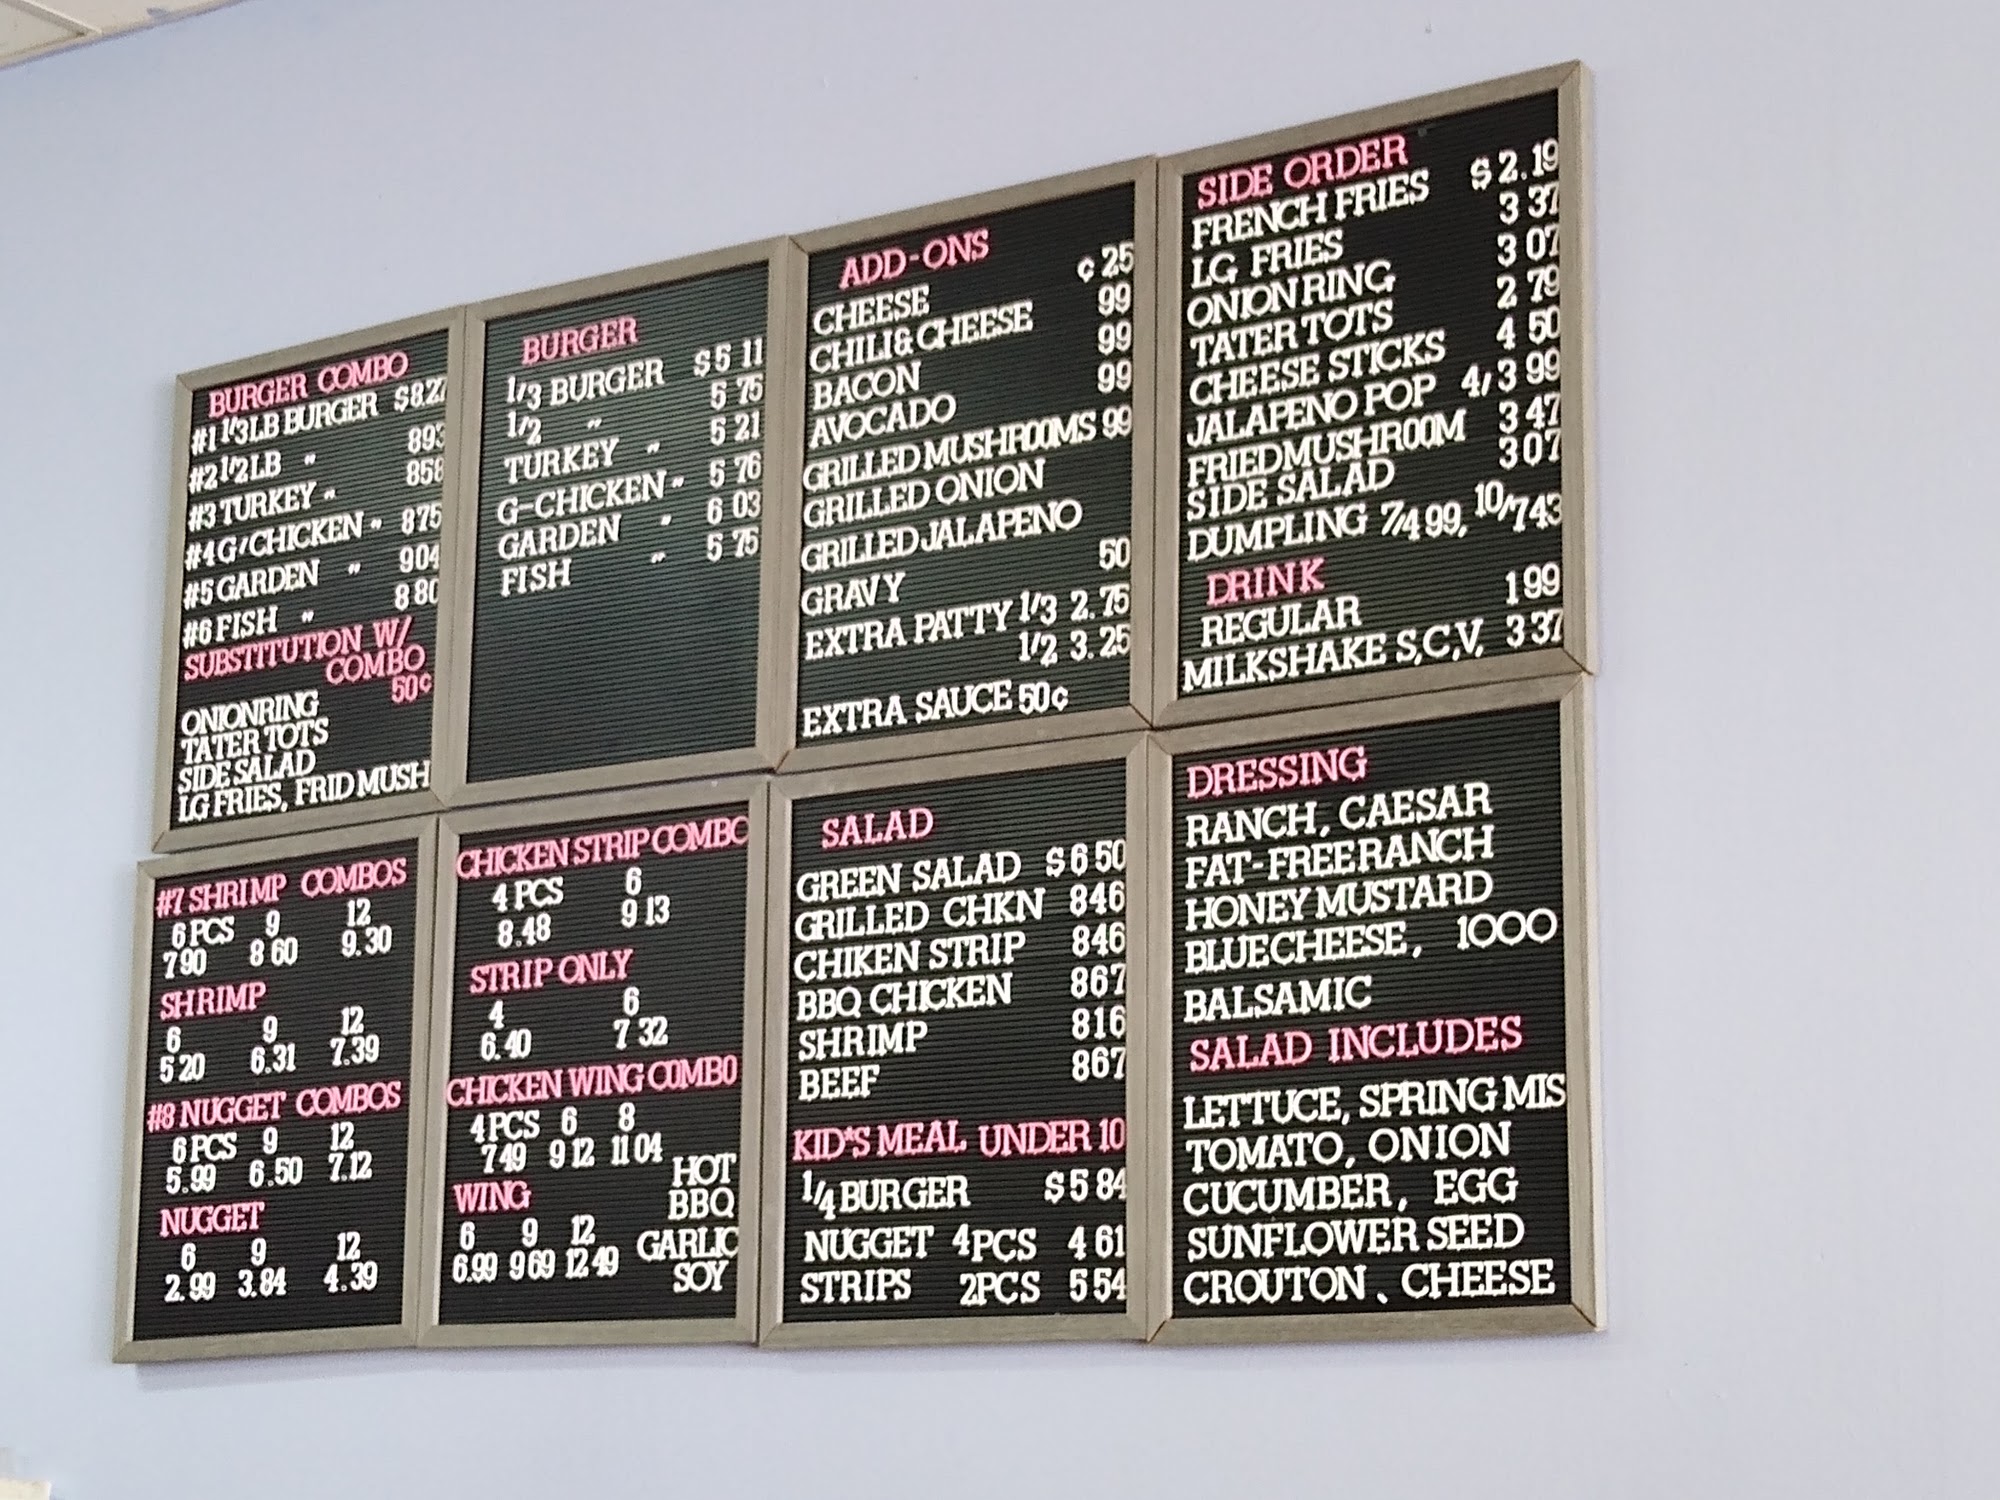 BURGER COMBO
#1 1/3LB BURGER $8.27
#2 1/2LB " 893
#3 TURKEY " 858
#4 G/CHICKEN " 875
#5 GARDEN " 904
#6 FISH " 8 80
SUBSTITUTION W/
COMBO
50¢
ONIONRING
TATER TOTS
SIDE SALAD
LG FRIES, FRID MUSH
BURGER
1/3 BURGER $5 11
1/2 " 5 75
TURKEY " 5 21
G-CHICKEN " 5 76
GARDEN " 6 03
FISH " 5 75
ADD-ONS
CHEESE ¢ 25
CHILI & CHEESE 99
BACON 99
AVOCADO 99
GRILLED MUSHROOMS 99
GRILLED ONION
GRILLED JALAPENO
GRAVY 50
EXTRA PATTY 1/3 2.75
1/2 3.25
EXTRA SAUCE 50¢
SIDE ORDER
FRENCH FRIES $2.19
LG FRIES 3 37
ONION RING 3 07
TATER TOTS 2 79
CHEESE STICKS 4 50
JALAPENO POP 4/3 99
FRIED MUSHROOM 3 47
SIDE SALAD 3 07
DUMPLING 7/4 99, 10/743
DRINK
REGULAR 1 99
MILKSHAKE S,C,V, 3 37
#7 SHRIMP COMBOS
6 PCS 9 12
7 90 8 60 9.30
SHRIMP
6 9 12
5 20 6.31 7.39
#8 NUGGET COMBOS
6 PCS 9 12
5.99 6.50 7.12
NUGGET
6 9 12
2.99 3.84 4.39
CHICKEN STRIP COMBO
4 PCS 6
8.48 9 13
STRIP ONLY
4 6
6.40 7 32
CHICKEN WING COMBO
4 PCS 6 8
7 49 9 12 11 04
WING
6 9 12
6.99 9 69 12 49
HOT
BBQ
GARLIC
SOY
SALAD
GREEN SALAD $6 50
GRILLED CHKN 846
CHIKEN STRIP 846
BBQ CHICKEN 867
SHRIMP 816
BEEF 867
KID*S MEAL UNDER 10
1/4 BURGER $5 84
NUGGET 4PCS 4 61
STRIPS 2PCS 5 54
DRESSING
RANCH, CAESAR
FAT-FREE RANCH
HONEY MUSTARD
BLUECHEESE, 1000
BALSAMIC
SALAD INCLUDES
LETTUCE, SPRING MIS
TOMATO, ONION
CUCUMBER, EGG
SUNFLOWER SEED
CROUTON, CHEESE